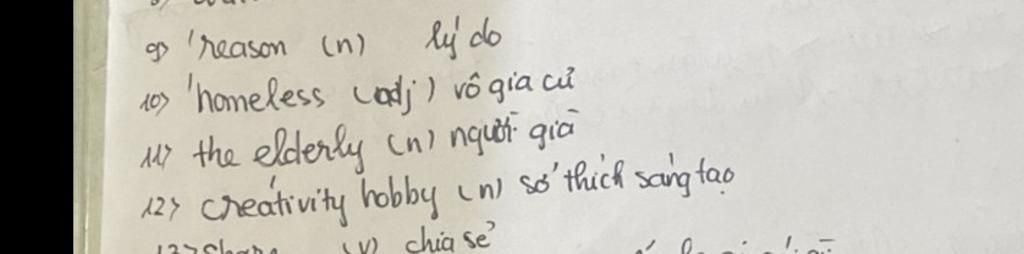 9> 'reason (n) lý do
10> 'homeless (adj) vô gia cử
11> the elderly (n) người già
12> creátivity hobby (n) sở thích sáng tạo
13> (v) chia sẻ